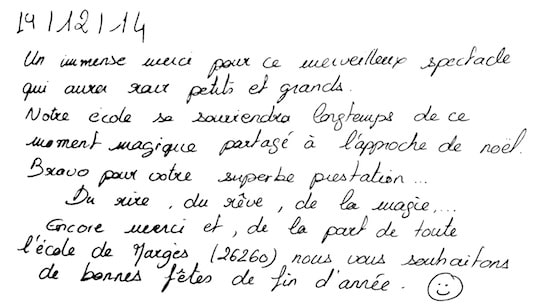 19/12/14
Un immense merci pour ce merveilleux spectacle
qui aura ravi petits et grands.
Notre école se souviendra longtemps de ce
moment magique partagé à l'approche de noël.
Bravo pour votre superbe prestation...
Du rire, du rêve, de la magie,...
Encore merci et, de la part de toute
l'école de Marges (26260) nous vous souhaitons
de bonnes fêtes de fin d'année.